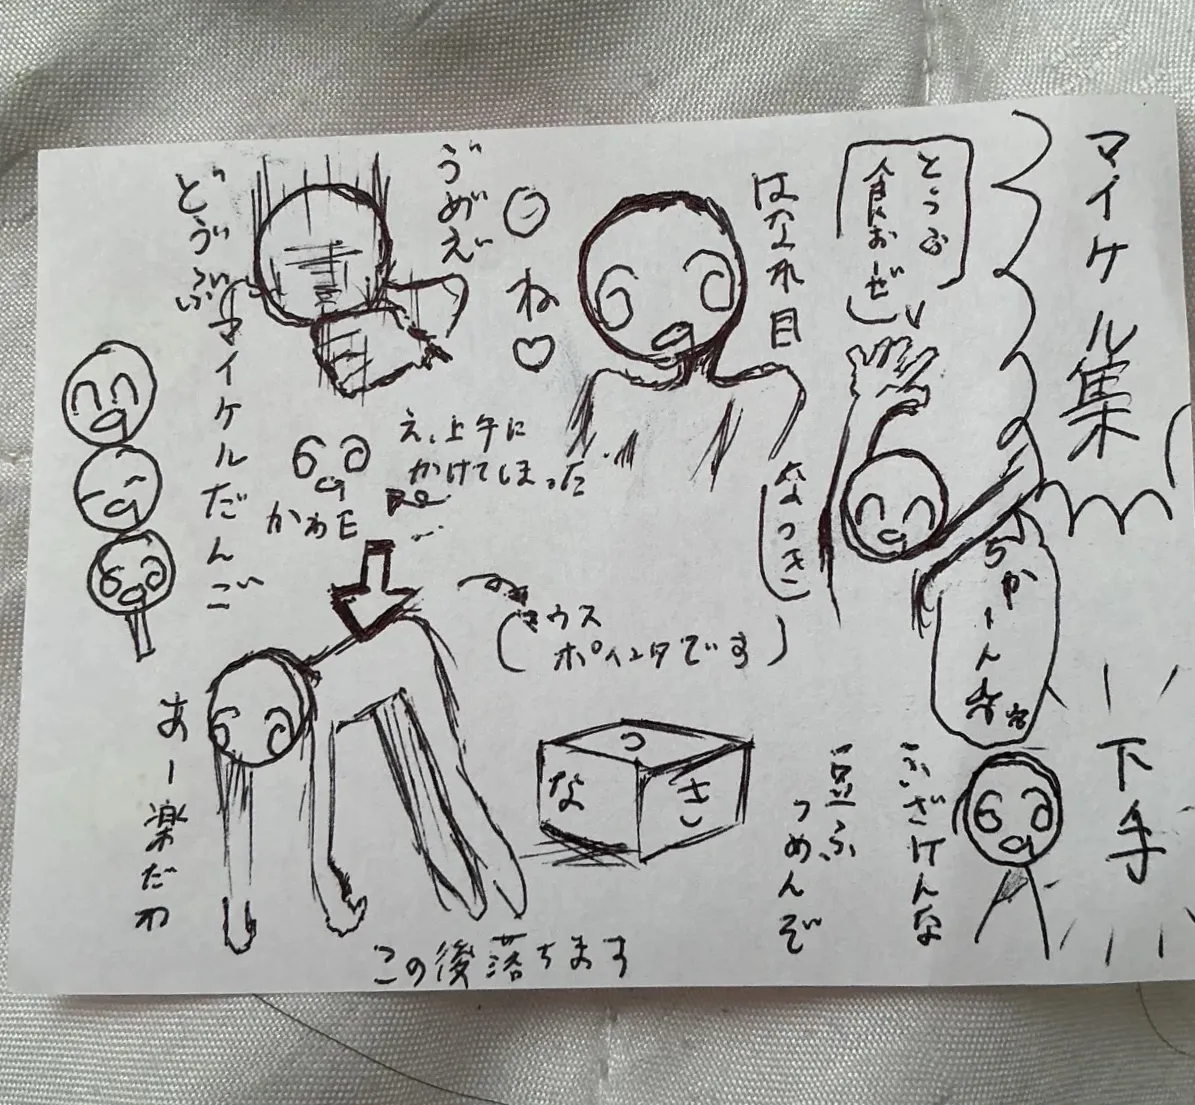 マイケル集
下手
とうふ
食におぜ
ちかーん
ふざけんな
豆ふ
つめんぞ
はなれ目
なつき
ね♡
え、上手に
かけてしまった
かわE
(マウス
ポインタです)
な
つ
き
この後落ちます
ゔめえ゙
どうぶ
マイケルだんご
あー楽だわ